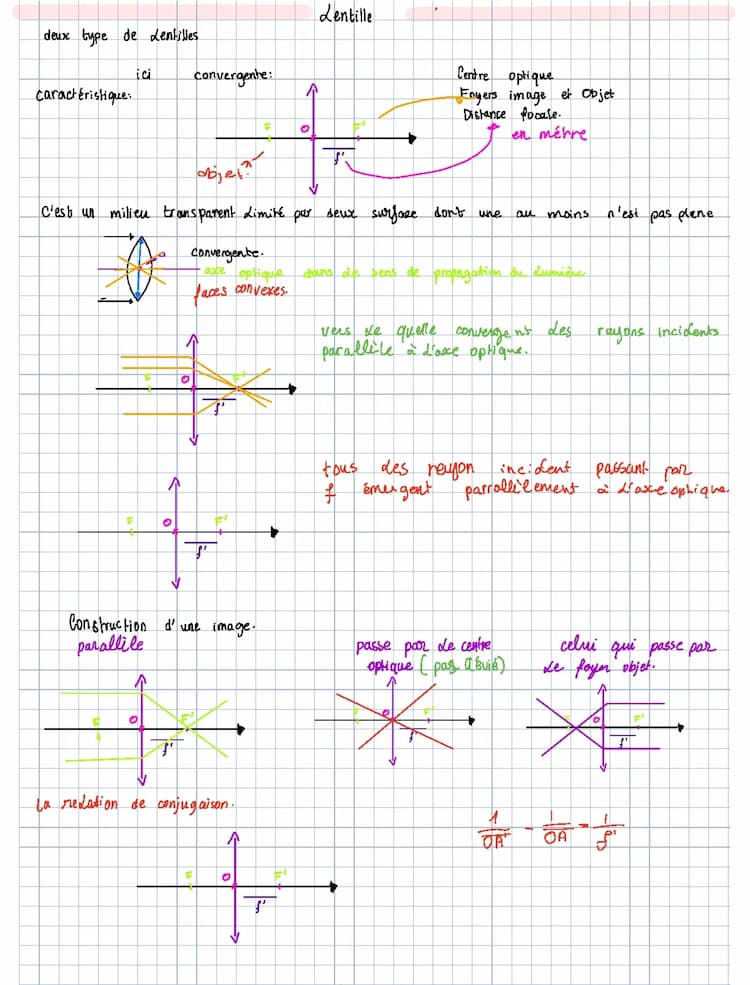 Lentille
deux type de Lentilles
ici convergente:
caractéristique:
Centre optique
Foyers image et Objet
Distance focale.
en mètre
F O F'
f'
objet?
C'est un milieu transparent limité par deux surface dont une au moins n'est pas plene
convergente.
axe optique dans le sens de propagation du lumière
faces convexes.
vers le quelle convergent les rayons incidents
parallèle à l'axe optique.
F O F'
f'
tous les rayon incident passant par
f émergent parrallèlement à l'axe optique.
F O F'
f'
Construction d'une image.
parallèle
passe par le centre
optique (pas dévié)
celui qui passe par
le foyer objet.
F O F'
f'
O
f'
O F'
f'
La relation de conjugaison.
1/OA' - 1/OA = 1/f'
F O F'
f'